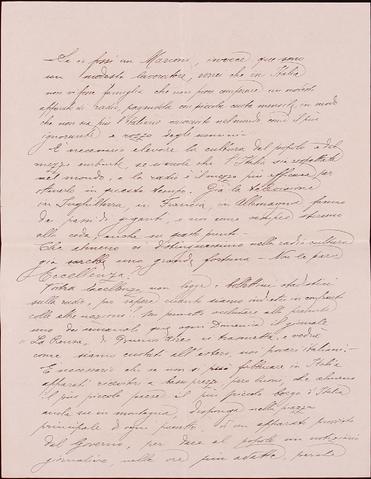 Se io fossi un Marconi, invece que sono
un modesto lavoratore, vorrei che in Italia
non vi fosse famiglia che non possa comprare un modesto
apparato di radio, pagandola con piccole quote mensili, in modo
che non sia più l'Italiano nel mondo come il più
ignorante e rozzo degli uomini.
È necessario elevare la cultura del popolo e del
mezzo ambiente, se si vuole che l'Italia sia rispettata
nel mondo, e la radio è il mezzo più efficace per
in piccolo tempo. Già la televisione
in Inghilterra, in Francia, in Allemagna fanno
dei passi di giganti, e noi come sempre
alla coda, anche in questo punto.
Che almeno ci distinguessimo nella radio cultura
già sarebbe una grande fortuna. Non le pare
Eccellenza?
Vostra Eccellenza non legge i bollettini statistici
sulla radio, per sapere quanto siamo indietro in confronto
colle altre nazioni? Mi permetto includere alla presente
uno dei che ogni Domenica il giornale
"La Razon", di Buenos Aires ci trasmette, e vedrà
come siamo quotati all'estero, noi poveri italiani.
È necessario che se non si può fabbricare in Italia
apparati recettori a basso prezzo, però buoni, che almeno
il più piccolo paese il più piccolo borgo d'Italia
anche su in montagna, disponga nella piazza
principale di ogni paesetto, di un apparato provvisto
dal Governo, per dare al popolo un notiziario
giornaliero, nelle ore più adatte, parlato